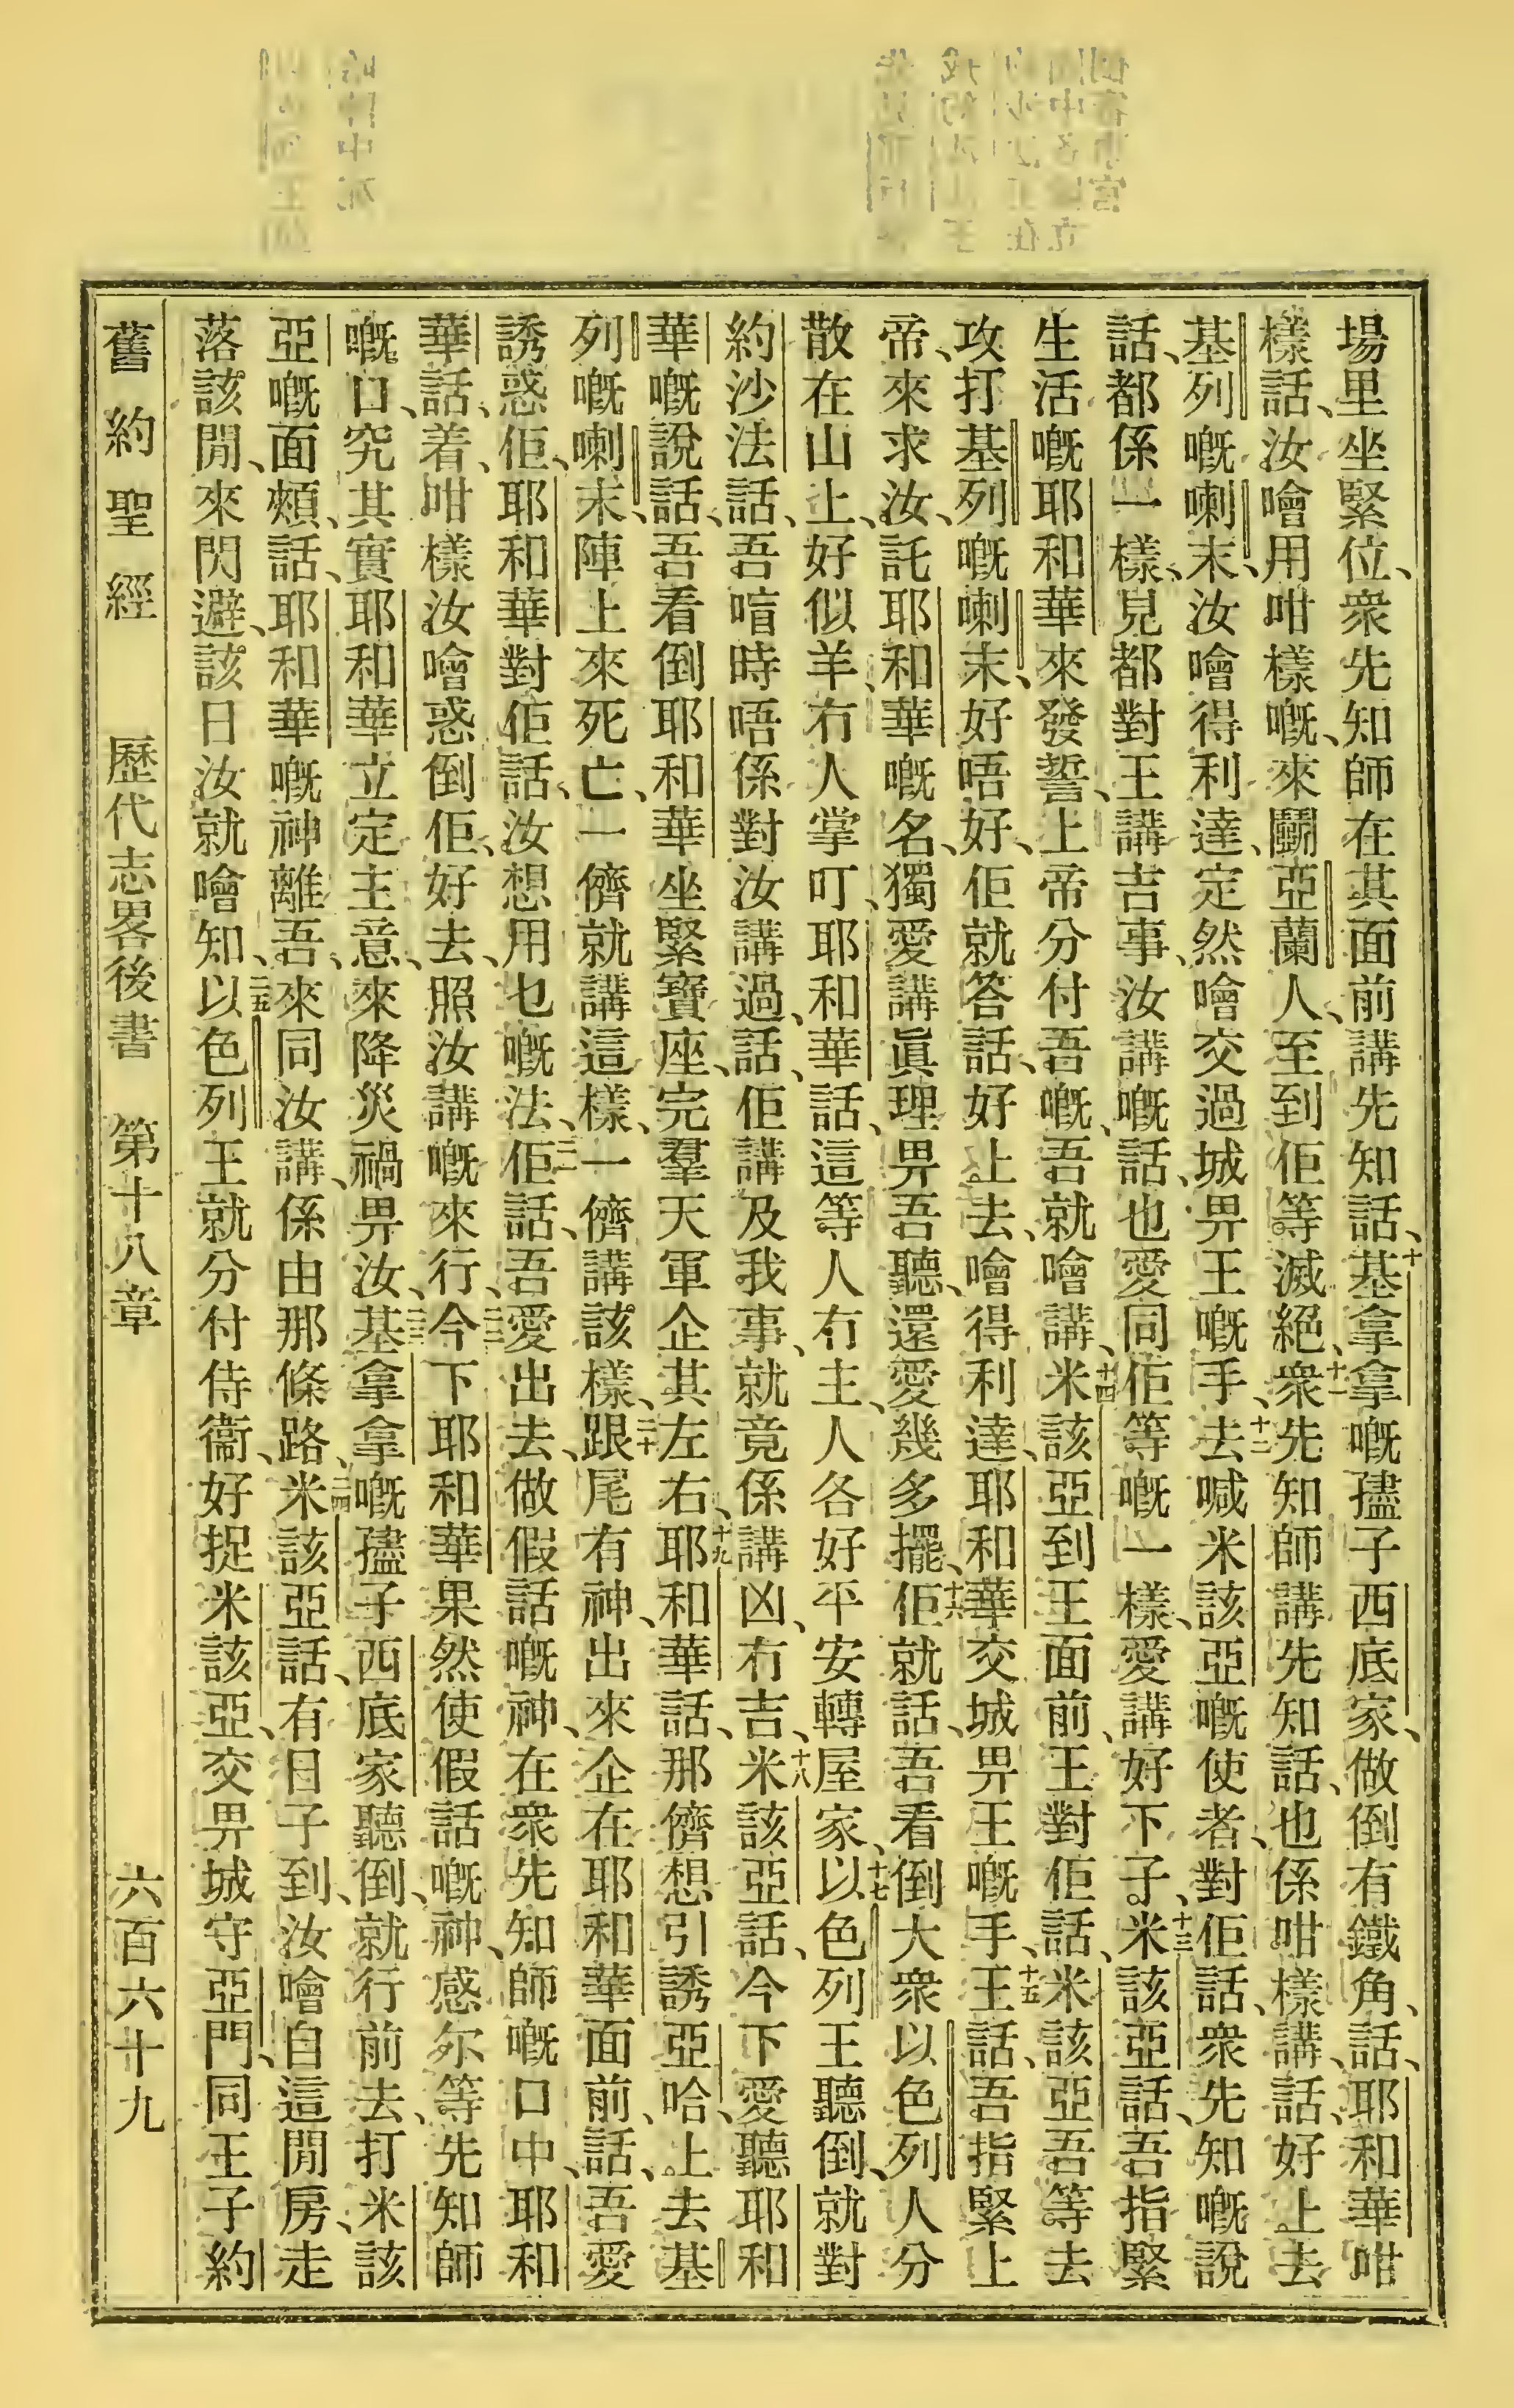 場里坐緊位、衆先知師在其面前講先知話、十基拿拿嘅孻子西底家、做倒有鐵角、話、耶和華咁
樣話、汝噲用咁樣嘅、來鬭亞蘭人、至到佢等滅絕、十一衆先知師講先知話、也係咁樣講、話、好上去
基列嘅喇末、汝噲得利達、定然噲交過城畀王嘅手、十二去喊米該亞嘅使者、對佢話、衆先知嘅說
話、都係一樣、見都對王講吉事、汝講嘅、話、也愛同佢等嘅一樣、愛講好下子。十三米該亞話、吾指緊
生活嘅耶和華來發誓、上帝分付吾嘅、吾就噲講、十四米該亞到王面前、王對佢話、米該亞吾等去
攻打基列嘅喇末、好唔好、佢就答話、好上去、噲得利達、耶和華交城畀王嘅手、十五王話、吾指緊上
帝、來求汝、託耶和華嘅名、獨愛講眞理畀吾聽、還愛幾多擺、十六佢就話、吾看倒大衆以色列人分
散在山上、好似羊、冇人掌叮、耶和華話、這等人冇主、人各好平安轉屋家、十七以色列王聽倒、就對
約沙法話、吾喧時唔係對汝講過、話、佢講及我事、就竟係講凶、冇吉、十八米該亞話、今下愛聽耶和
華嘅說話、吾看倒耶和華坐緊寶座、完羣天軍企其左右、十九耶和華話、那儕想引誘亞哈、上去基
列嘅喇末、陣上來死亡、一儕就講這樣、一儕講該樣、二十跟尾有神、出來企在耶和華面前、話、吾愛
誘惑佢、耶和華對佢話、汝想用乜嘅法、二一佢話、吾愛出去、做假話嘅神、在衆先知師嘅口中、耶和
華話、着、咁樣汝噲惑倒佢、好去、照汝講嘅來行、二二今下耶和華果然使假話嘅神、惑尔等先知師
嘅口、究其實耶和華立定主意、來降災禍畀汝、二三基拿拿嘅孻子西底家聽倒、就行前去、打米該
亞嘅面頰、話、耶和華嘅神離吾、來同汝講、係由那條路、二四米該亞話、有目子到、汝噲自這間房、走
落該間、來閃避、該日汝就噲知、二五以色列王就分付侍衞、好捉米該亞、交畀城守亞門、同王子約
舊約聖經 歷代志畧後書 第十八章 六百六十九